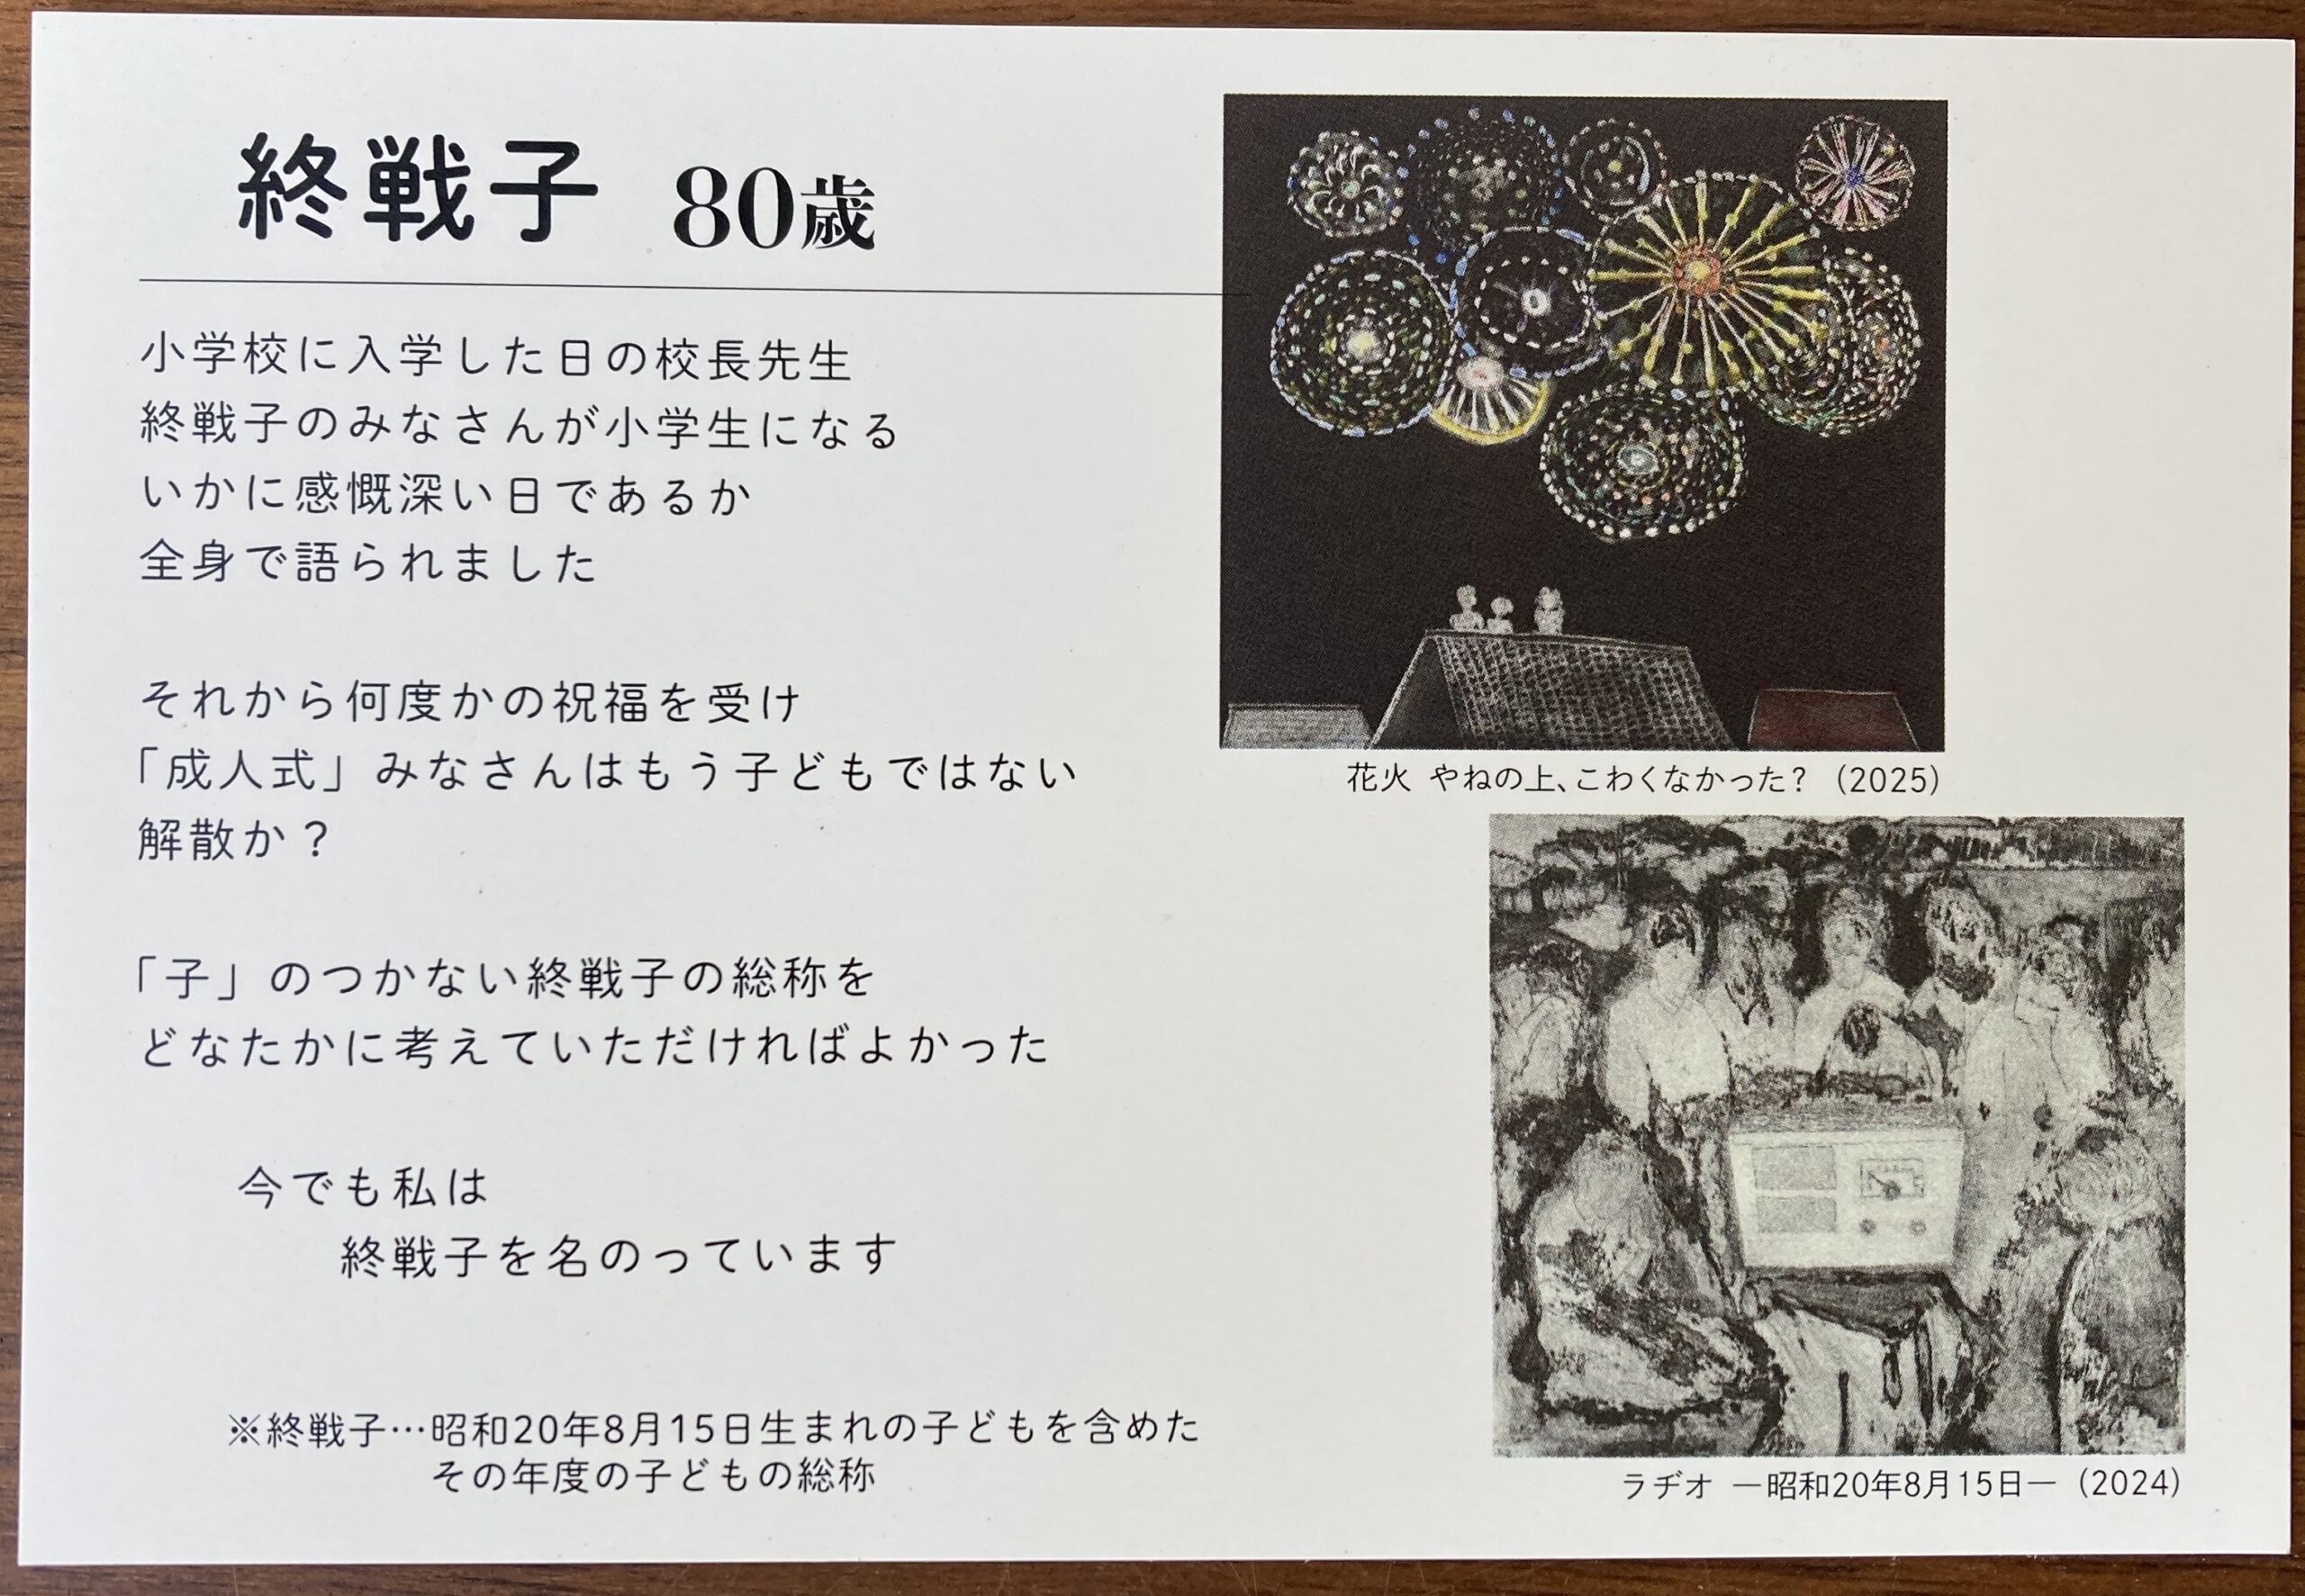 終戦子 80歳
小学校に入学した日の校長先生
終戦子のみなさんが小学生になる
いかに感慨深い日であるか
全身で語られました
それから何度かの祝福を受け
「成人式」みなさんはもう子どもではない
解散か？
「子」のつかない終戦子の総称を
どなたかに考えていただければよかった
今でも私は
終戦子を名のっています
※終戦子…昭和20年8月15日生まれの子どもを含めた
その年度の子どもの総称
花火 やねの上、こわくなかった？（2025）
ラヂオ ―昭和20年8月15日―（2024）